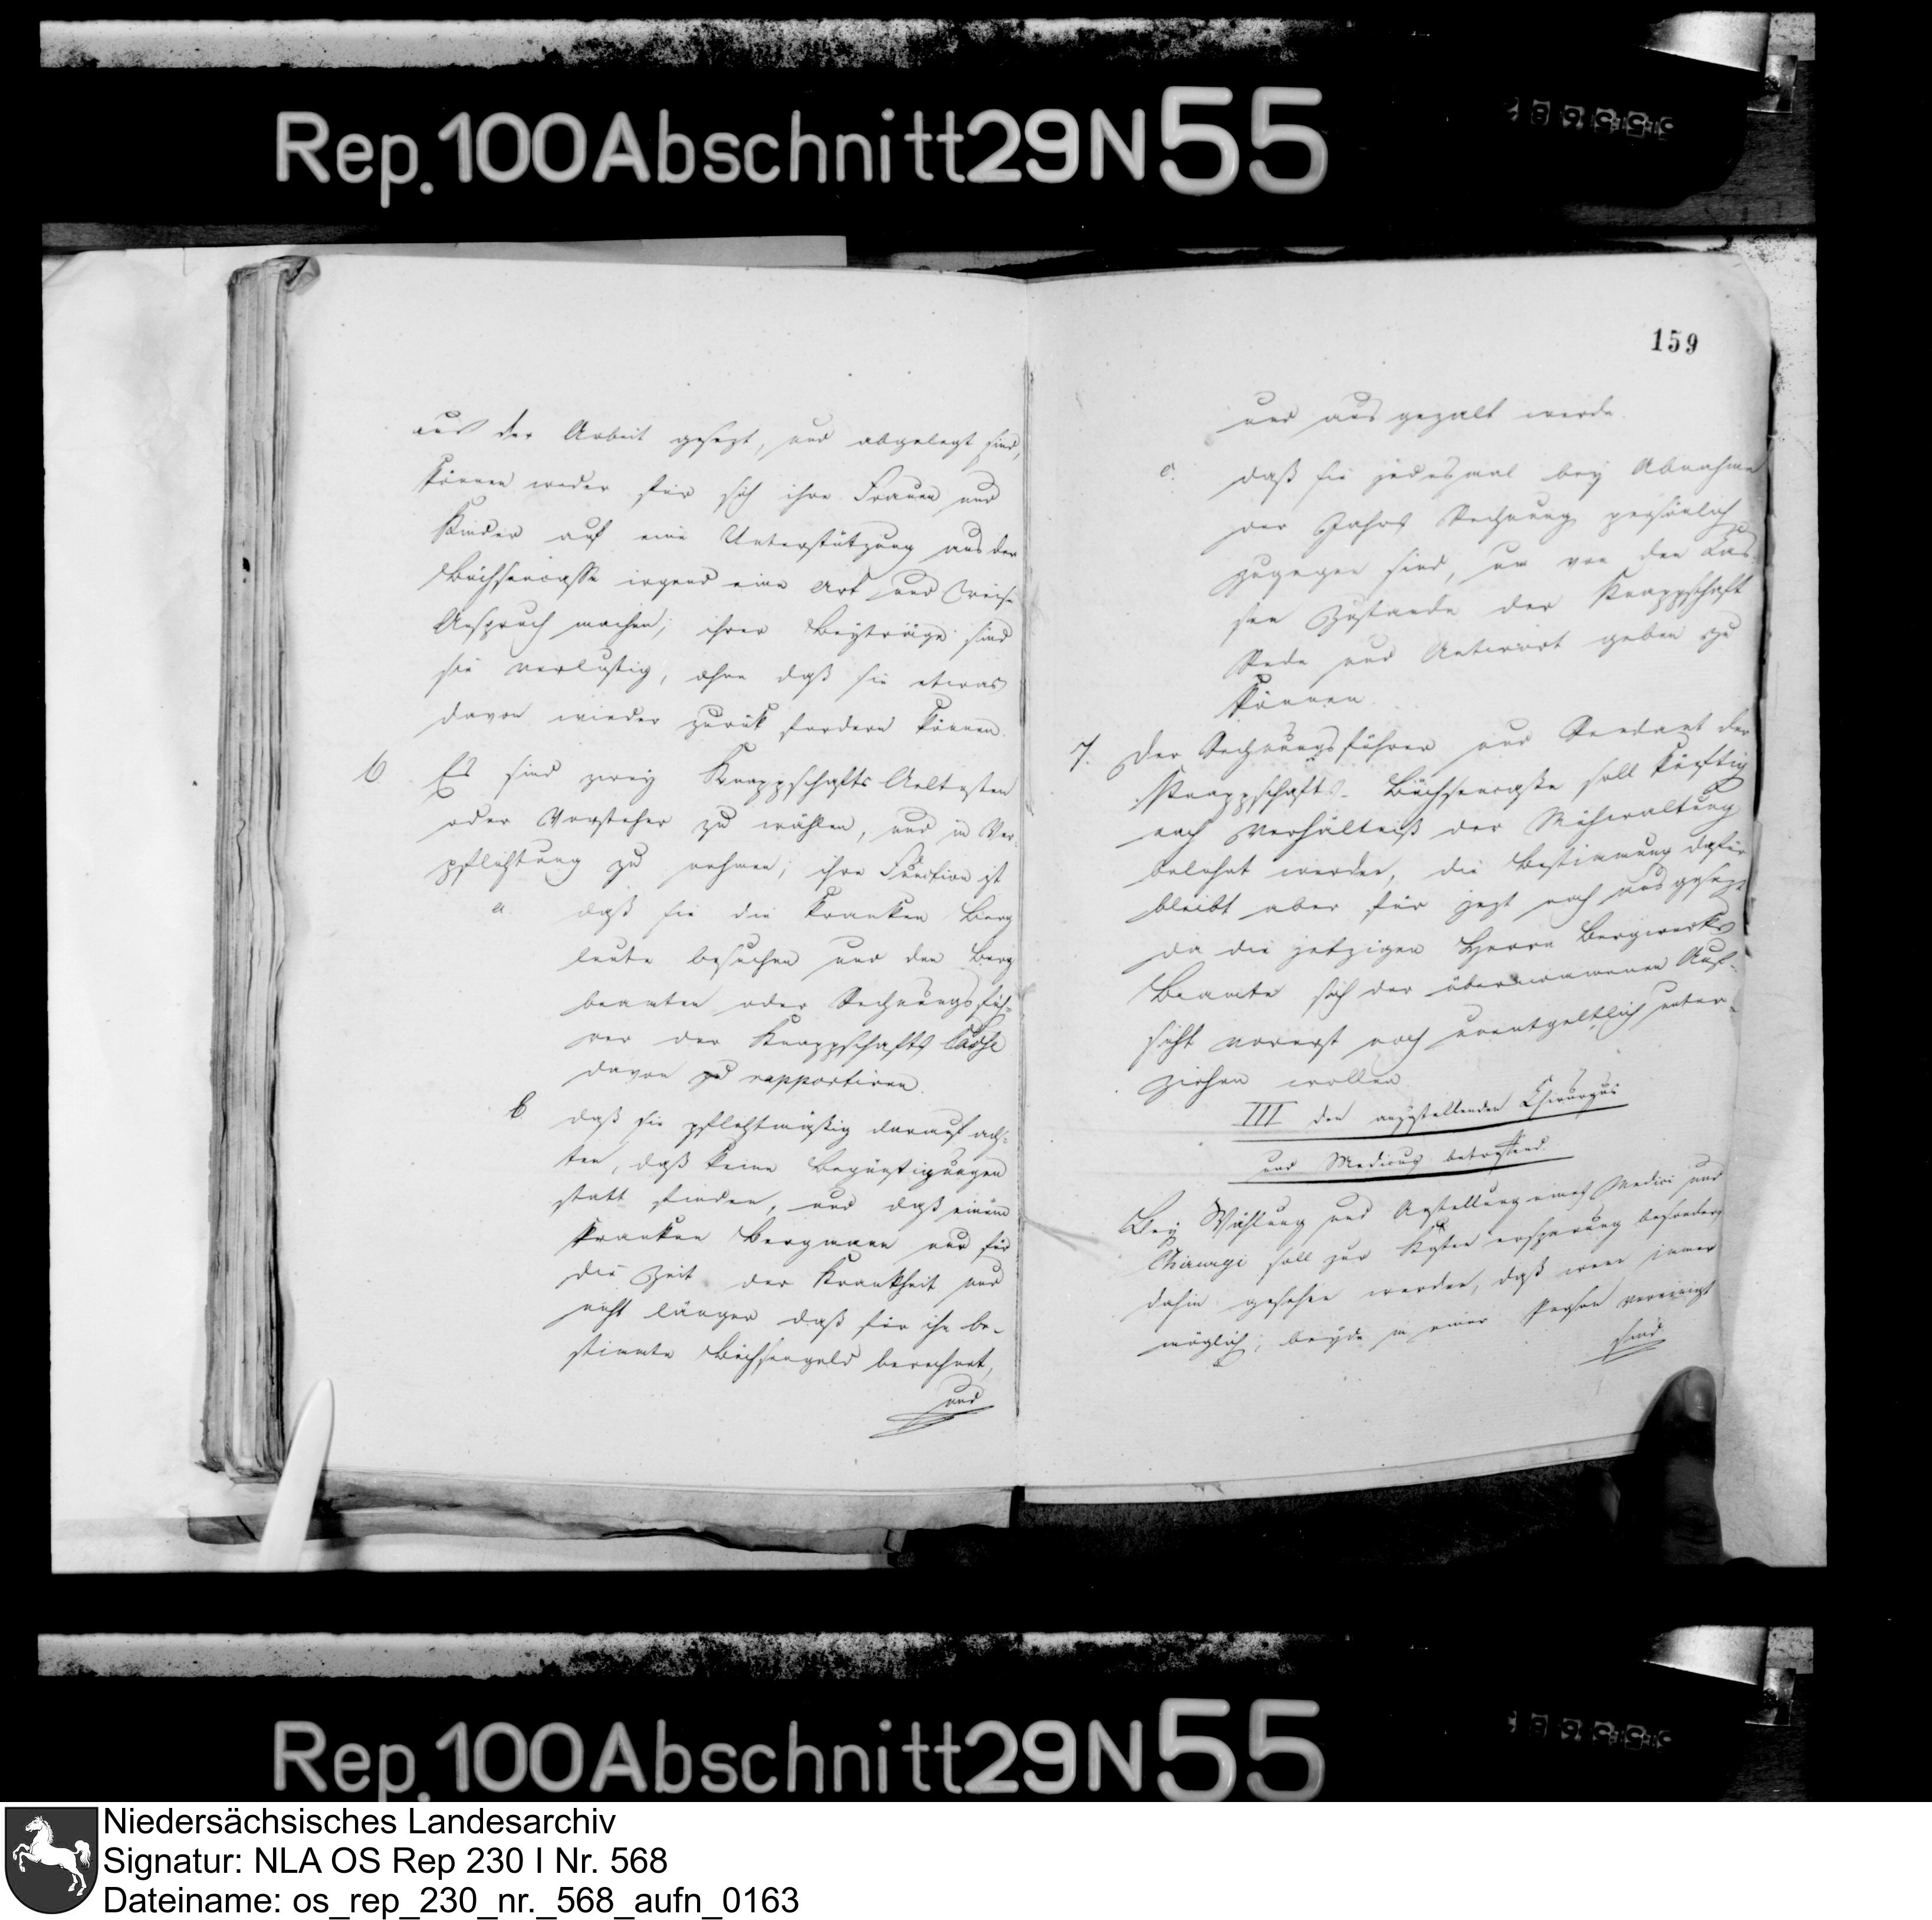 Rep. 100 Abschnitt 29 N 55
aus der Arbeit gesezt, und abgelegt sind,
können weder für sich ihre Frauen und
Kinder auf eine Unterstützung aus der
Büchsencasse irgend eine Art und Weise
Anspruch machen; ihrer Beyträge sind
sie verlustig, ohne daß sie etwas
davon wieder zurük fordern können.
6. Es sind zwey Knappschafts Aeltesten
oder Vorsteher zu wählen, und in Ver-
pflichtung zu nehmen; ihre Function ist
a. daß sie die kranken Berg
leute besuchen und den Berg
beamten oder Rechnungsfüh-
rer der Knappschafts Casse
davon zu rapportiren.
b daß sie pflichtmäßig darauf ach-
ten, daß keine Begünstigungen
statt finden, und daß einem
kranken Bergmann nur für
die Zeit der Krankheit und
nicht länger daß für ihn be-
stimmte Büchsengeld berechnet,
und
159
und ausgezalt werde.
c. daß sie jedesmal bey Abnahme
der Jahrs Rechnung persönlich
zugegen sind, um von den Cas-
sen Zustande der Knappschaft
Rede und Antwort geben zu
können.
7. Der Rechnungsführer und Rendant der
Knappschafts-Büchsencasse soll künftig
nach Verhältniß der Mühwaltung
belohnt werden, die Bestimmung dafür
bleibt aber für jezt noch ausgesezt
da die jetzigen Herrn Bergwerks
Beamte sich der übernommenen Auf-
sicht vorerst noch unentgeltlich unter-
ziehen wollen.
III den anzustellenden Chirurgus
und Medicus betreffend.
Bey Wählung und Anstellung eines Medici und
Chirurgi soll zur Kosten ersparung besonders
dahin gesehen werden, daß wenn immer
möglich; beyde in einer Person vereinigt
sind
Rep. 100 Abschnitt 29 N 55
Niedersächsisches Landesarchiv
Signatur: NLA OS Rep 230 I Nr. 568
Dateiname: os_rep_230_nr._568_aufn_0163